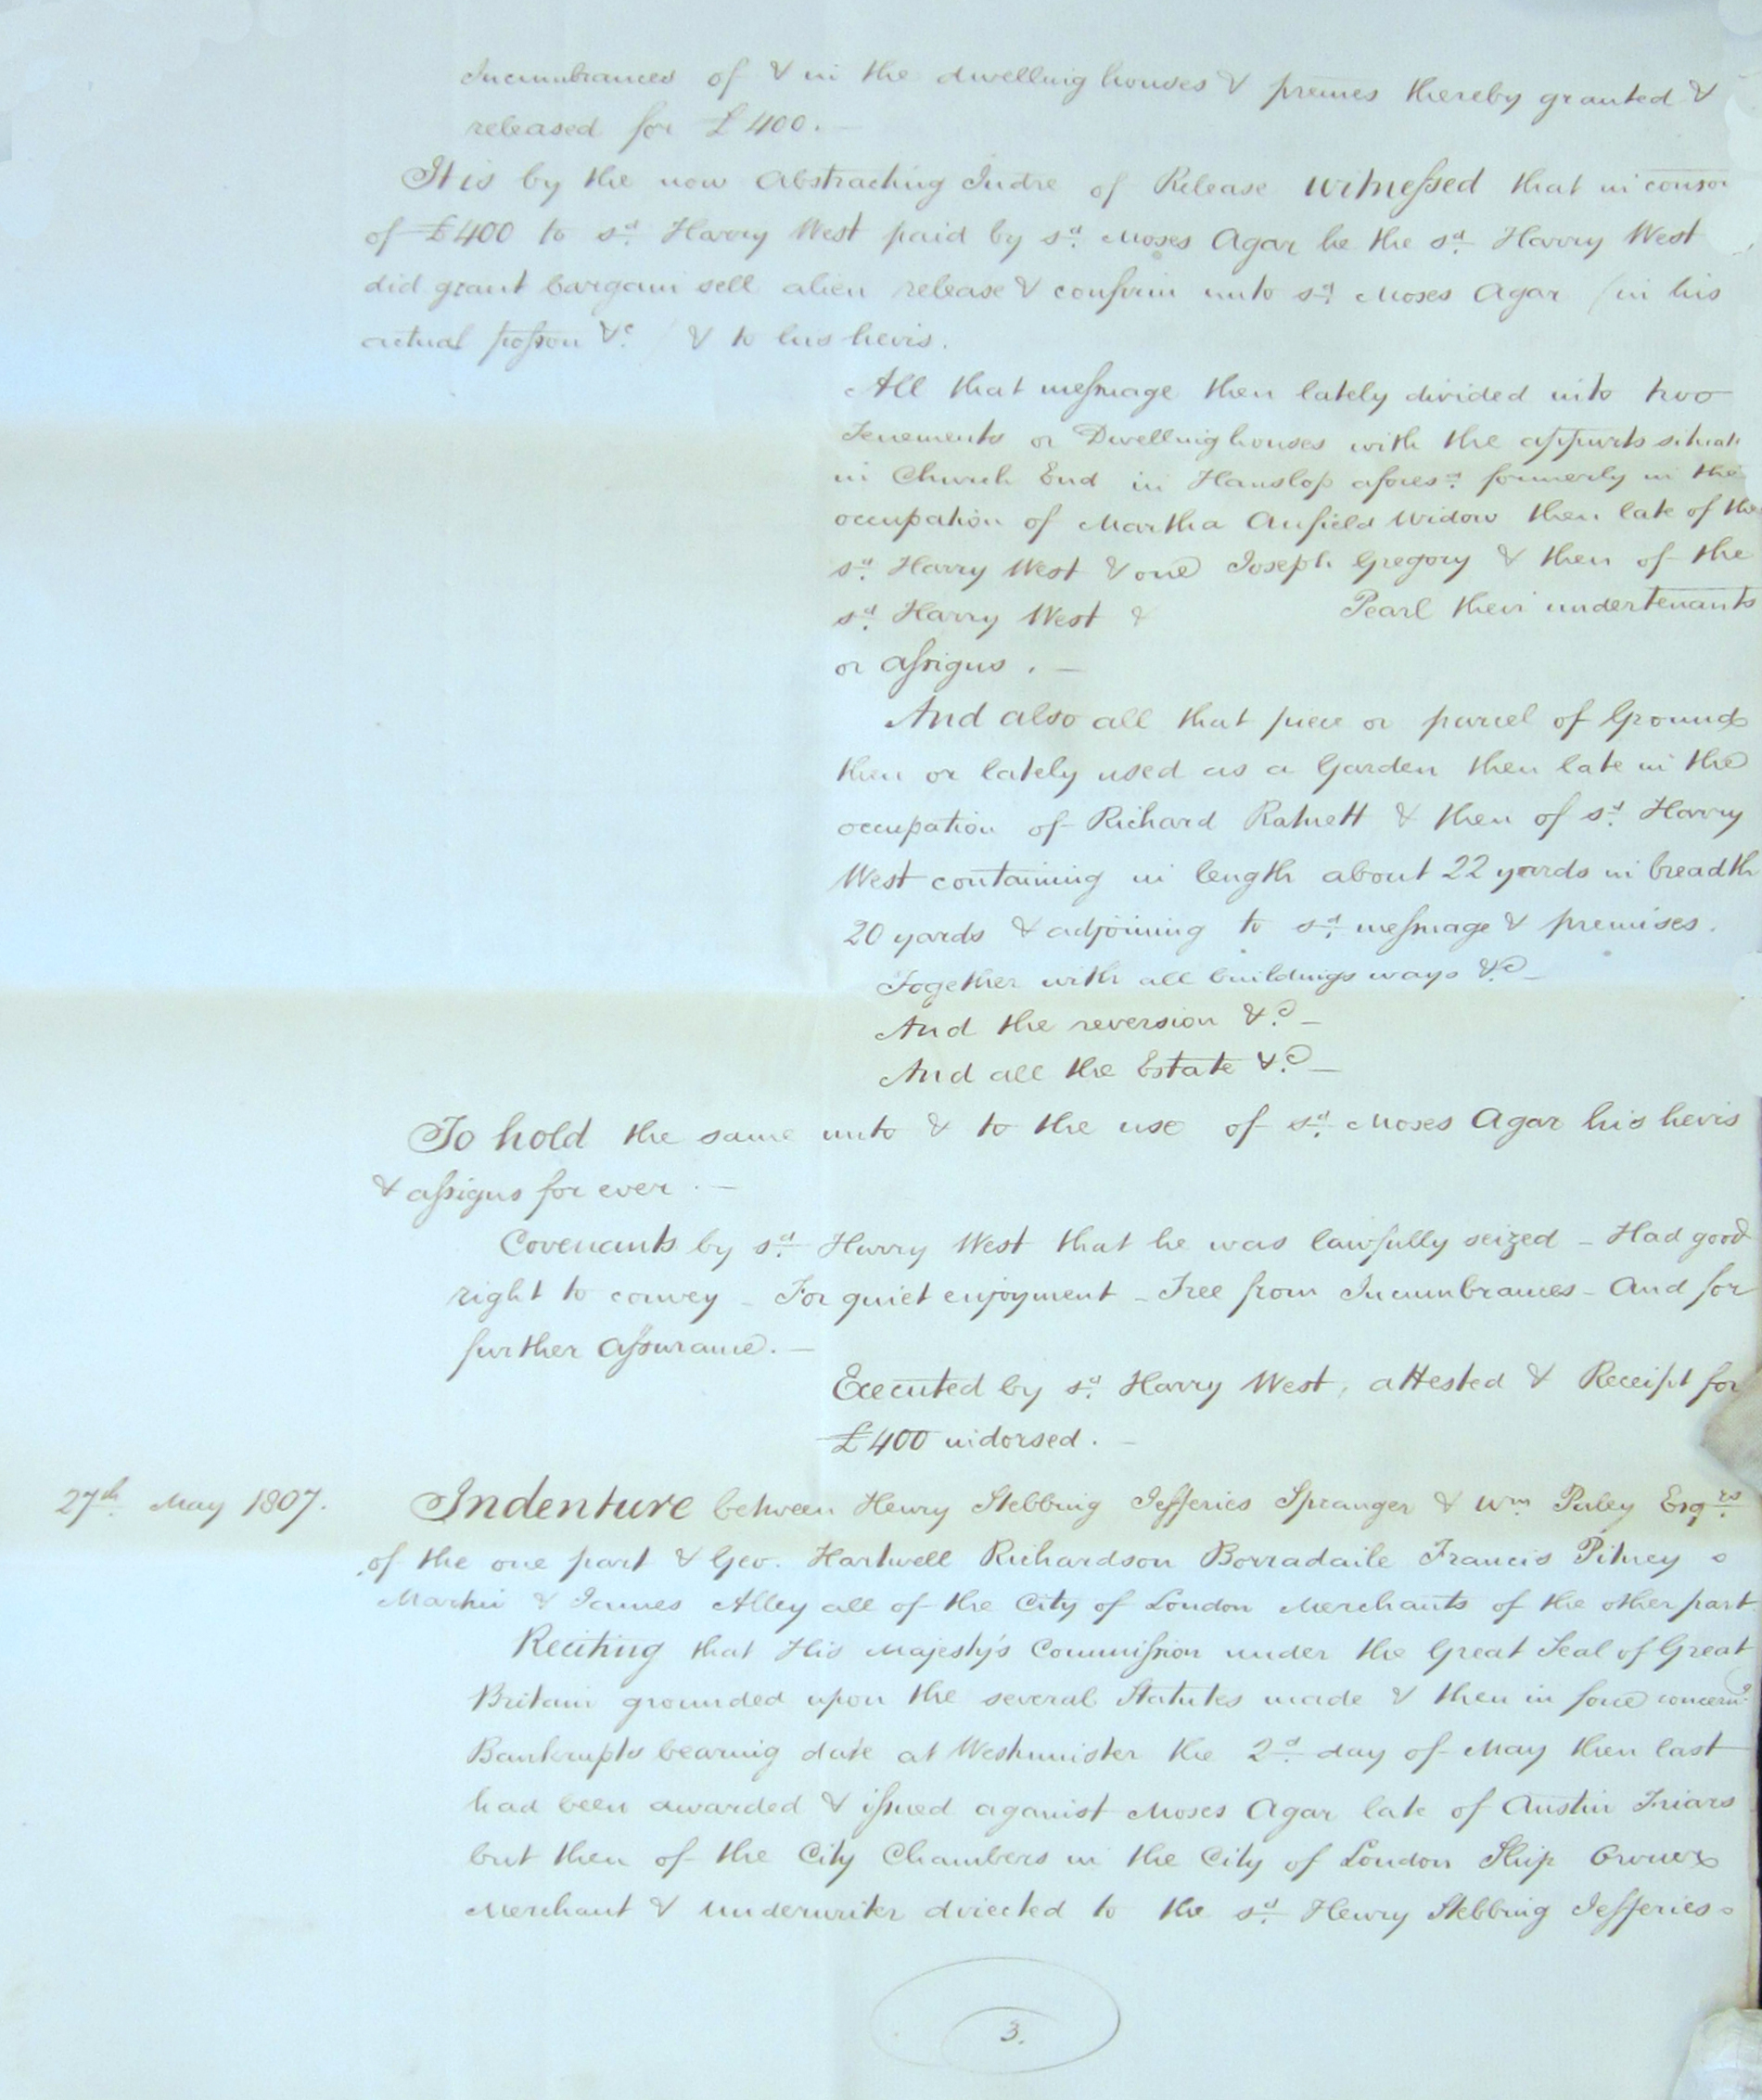 Incumbrances of & in the dwelling houses & premes thereby granted &
released for £400.—
It is by the now Abstracting Indre of Release witnessed that in conson
of £400 to sd. Harry West paid by sd. Moses Agar he the sd. Harry West
did grant bargain sell alien release & confirm unto sd. Moses Agar (in his
actual posson &c. / & to his heirs.
All that messuage then lately divided into two
Tenements or Dwelling houses with the appurts situate
in Church End in Hanslop afores.d formerly in the
occupation of Martha Anfield Widow then late of the
sd. Harry West & one Joseph Gregory & then of the
sd. Harry West & Pearl their undertenants
or assigns.—
And also all that piece or parcel of Ground
then or lately used as a Garden then late in the
occupation of Richard Ratnett & then of sd. Harry
West containing in length about 22 yards in breadth
20 yards & adjoining to sd. messuage & premises.
Together with all buildings ways &c.—
And the reversion &c.—
And all the Estate &c.—
To hold the same unto & to the use of sd. Moses Agar his heirs
& assigns for ever.—
Covenants by sd. Harry West that he was lawfully seized – Had good
right to convey – For quiet enjoyment – Free from Incumbrances – And for
further Assurance.—
Executed by sd. Harry West, attested & Receipt for
£400 indorsed.—
27th. May 1807. Indenture between Henry Stebbing Jefferies Spranger & Wm. Paley Esqrs.
of the one part & Geo. Hartwell Richardson Borradaile Francis Pitney
Martin & James Alley all of the City of London Merchants of the other part
Reciting that His Majesty's Commission under the Great Seal of Great
Britain grounded upon the several Statutes made & then in force concerng.
Bankrupts bearing date at Westminster the 2d. day of May then last
had been awarded & issued against Moses Agar late of Austin Friars
but then of the City Chambers in the City of London Ship Owner
Merchant & Underwriter directed to the sd. Henry Stebbing Jefferies
3.